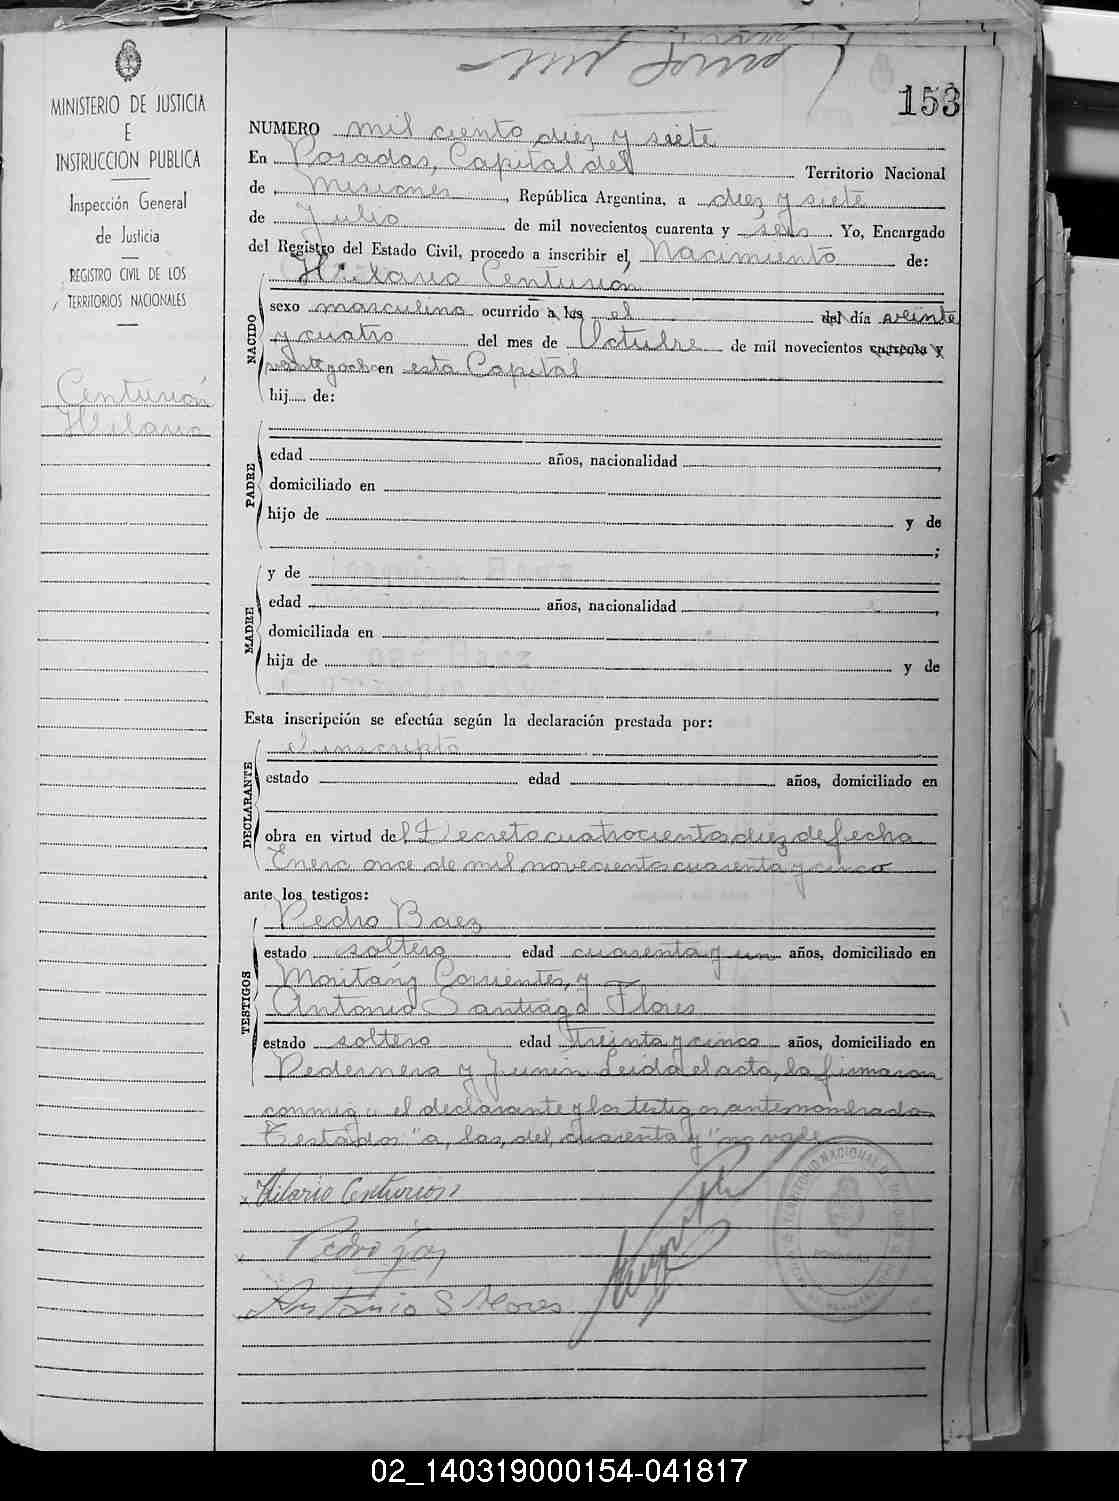 153
MINISTERIO DE JUSTICIA
E
INSTRUCCION PUBLICA
Inspección General
de Justicia
REGISTRO CIVIL DE LOS
TERRITORIOS NACIONALES
Centurión
Hilario
NUMERO mil ciento diez y siete
En Posadas, Capital del Territorio Nacional
de Misiones, República Argentina, a diez y siete
de Julio de mil novecientos cuarenta y seis Yo, Encargado
del Registro del Estado Civil, procedo a inscribir el Nacimiento de:
Hilario Centurion
NACIDO
sexo masculino ocurrido a las el del día veinte
y cuatro del mes de Octubre de mil novecientos cuarenta y
veinte y ocho en esta Capital
hij..... de:
PADRE
edad años, nacionalidad
domiciliado en
hijo de y de
;
MADRE
y de
edad años, nacionalidad
domiciliada en
hija de y de
Esta inscripción se efectúa según la declaración prestada por:
DECLARANTE
inscripto
estado edad años, domiciliado en
obra en virtud del Decreto cuatrocientos diez de fecha
Enero once de mil novecientos cuarenta y cinco
ante los testigos:
TESTIGOS
Pedro Baez
estado soltero edad cuarenta y un años, domiciliado en
Corrientes, y
Antonio Santiago Flores
estado soltero edad treinta y cinco años, domiciliado en
Pedernera y Junin Leida el acta, la firmaron
conmigo el declarante y los testigos antenombrados
Testados "a, las, del, cuarenta y" no vale
Hilario Centurion
Pedro
Antonio S Flores
TERRITORIO NACIONAL DE MISIONES
POSADAS
02_140319000154-041817